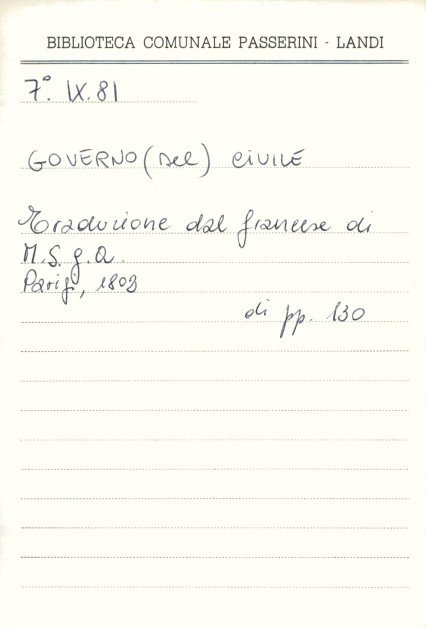 BIBLIOTECA COMUNALE PASSERINI - LANDI
7°. IX. 81
GOVERNO (del) CIVILE
Traduzione dal francese di
M. S. g. a.
Parigi, 1803
di pp. 130